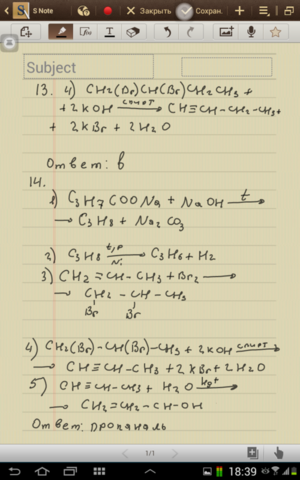 S Note
Закрыть
Сохран.
Subject
13. 4) CH2(Br)CH(Br)CH2CH3 +
+ 2KOH спирт→ CH≡CH-CH2-CH3+
+ 2KBr + 2H2O
Ответ: в
14.
1) C3H7COONa + NaOH t→
→ C3H8 + Na2CO3
2) C3H8 t,p→ Ni C3H6 + H2
3) CH2=CH-CH3+Br2 →
→ CH2 - CH - CH3
Br Br
4) CH2(Br)-CH(Br)-CH3 + 2KOH спирт→
→ CH≡CH-CH3 + 2KBr+2H2O
5) CH≡CH-CH3 + H2O Hg+→
→ CH2=CH2-CH-OH
Ответ: пропаналь
1/1
18:39